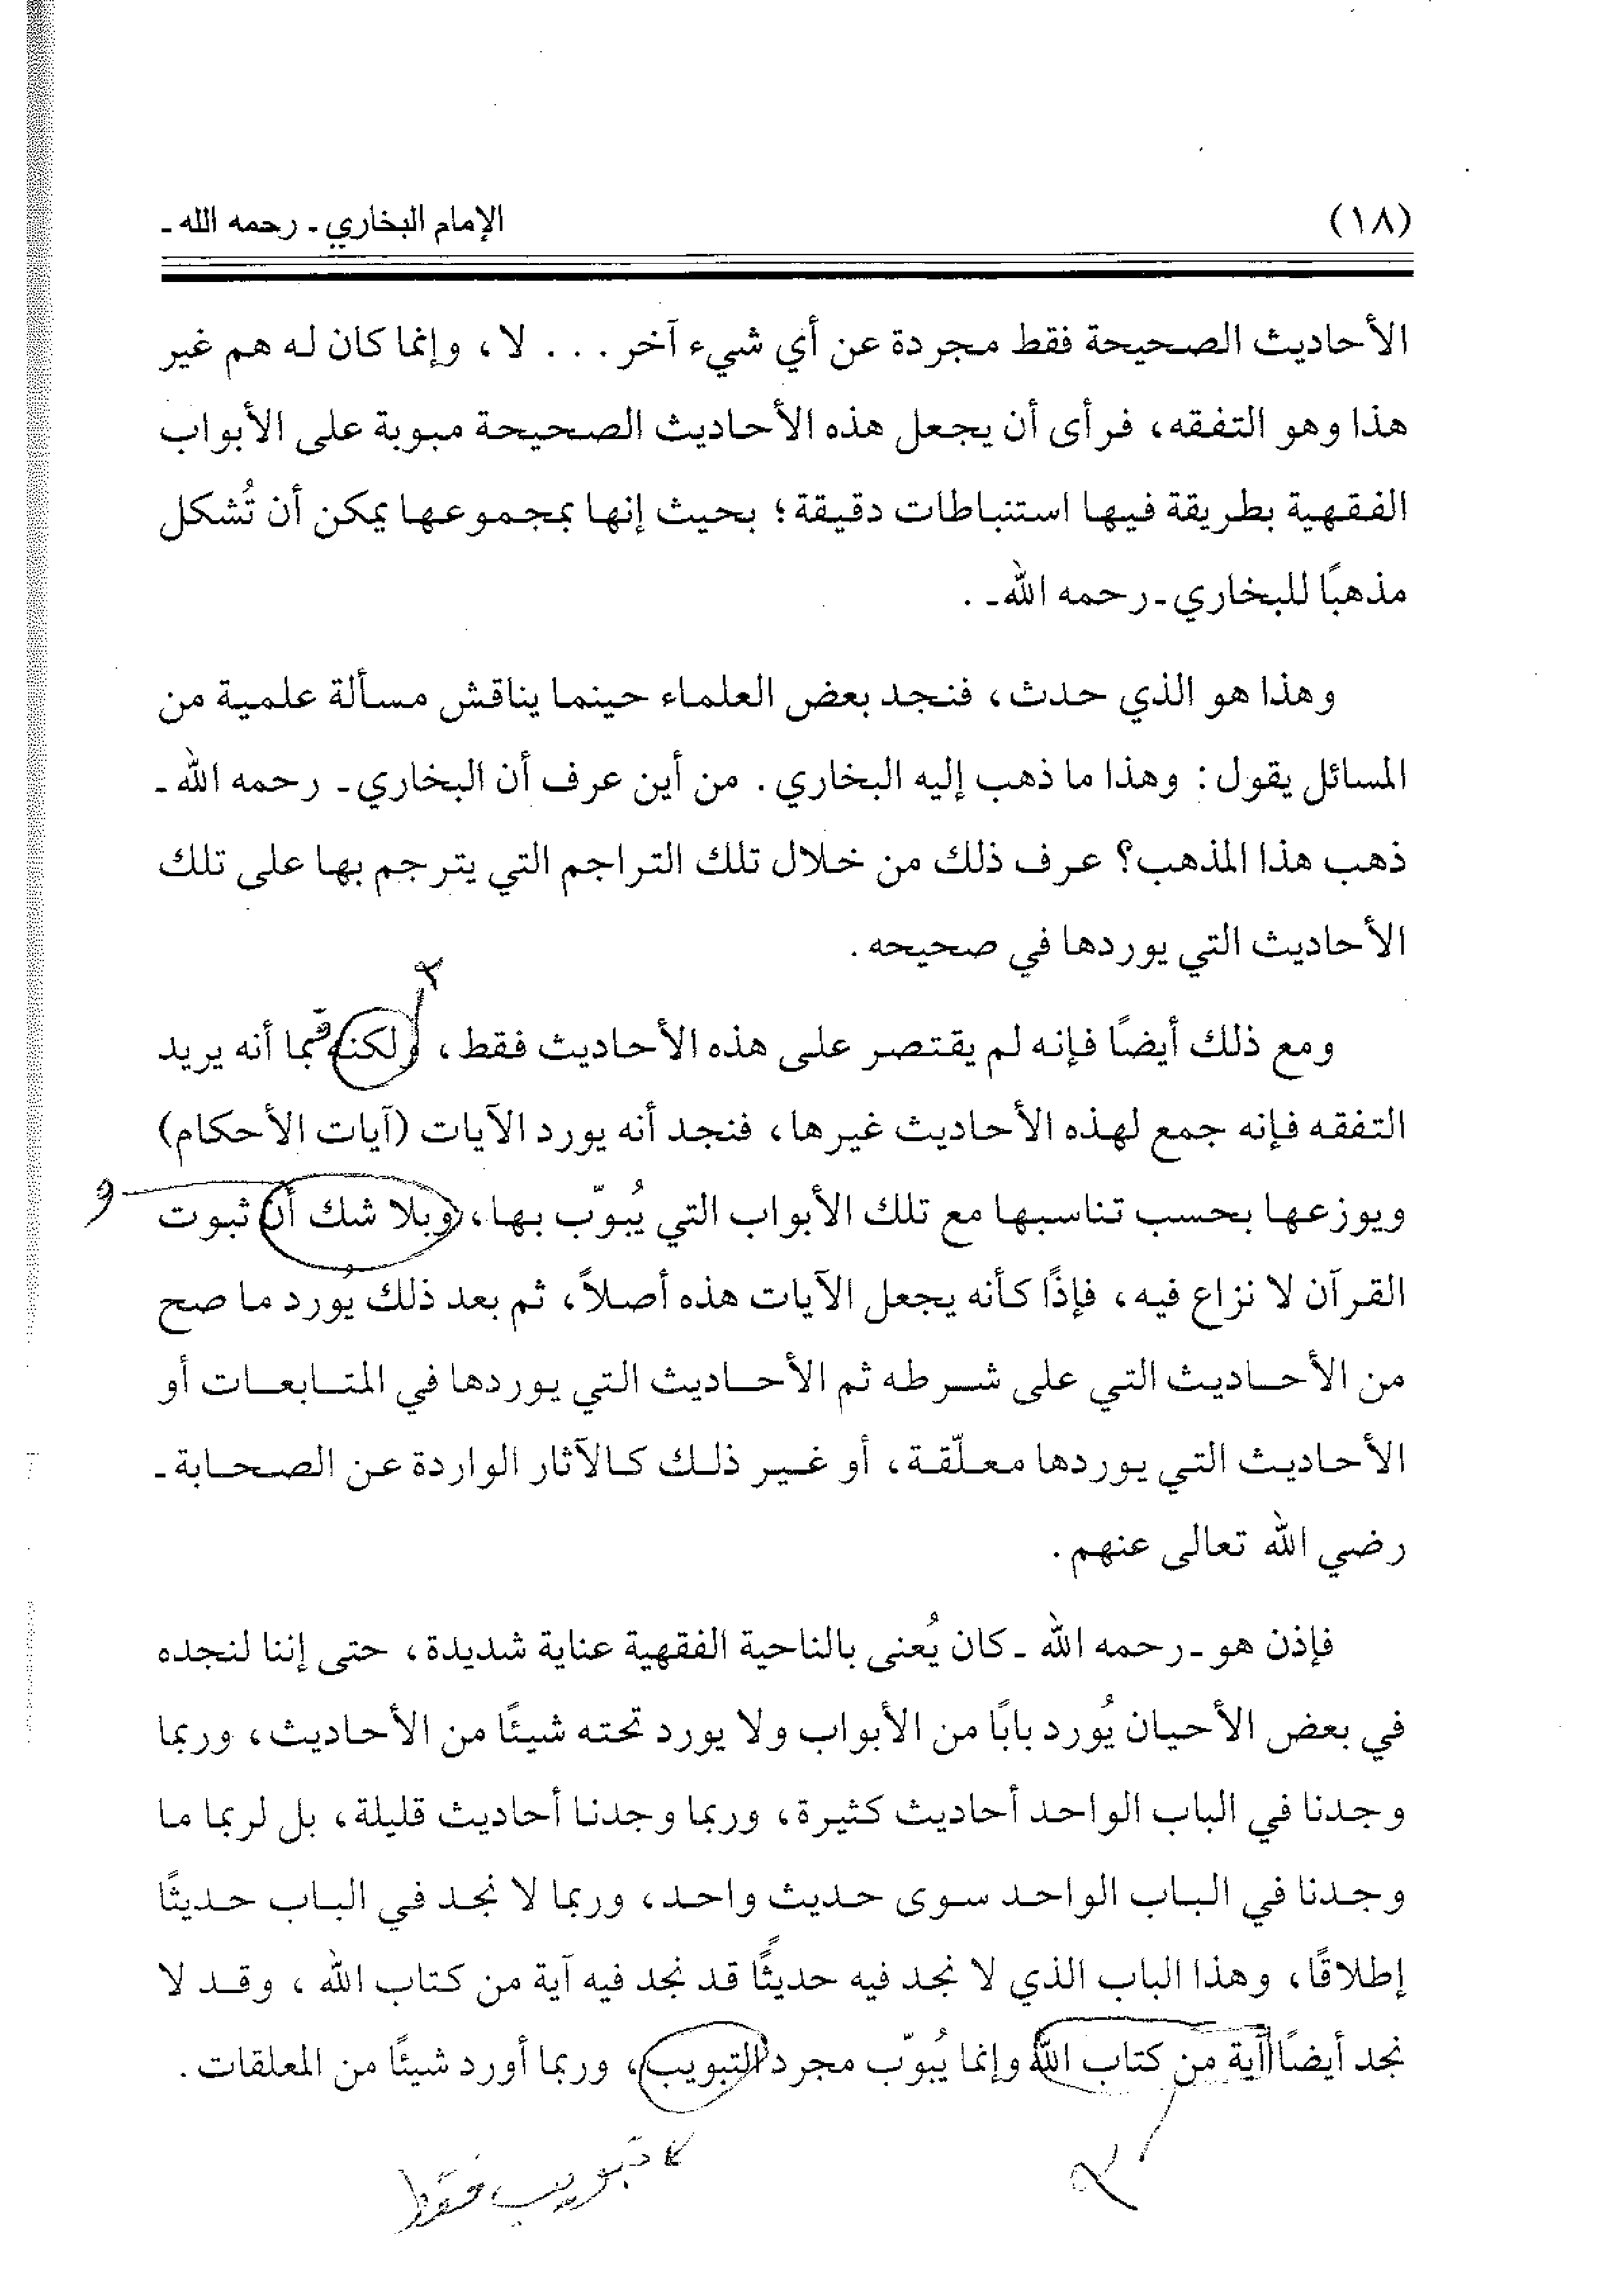 (١٨)
الإمام البخاري ـ رحمه الله ـ
الأحاديث الصحيحة فقط مجردة عن أي شيء آخر . . . لا، وإنما كان له هم غير
هذا وهو التفقه، فرأى أن يجعل هذه الأحاديث الصحيحة مبوبة على الأبواب
الفقهية بطريقة فيها استنباطات دقيقة؛ بحيث إنها بمجموعها يمكن أن تُشكل
مذهبًا للبخاري ـ رحمه الله ـ .
وهذا هو الذي حدث، فنجد بعض العلماء حينما يناقش مسألة علمية من
المسائل يقول: وهذا ما ذهب إليه البخاري. من أين عرف أن البخاري ـ رحمه الله ـ
ذهب هذا المذهب؟ عرف ذلك من خلال تلك التراجم التي يترجم بها على تلك
الأحاديث التي يوردها في صحيحه.
ومع ذلك أيضًا فإنه لم يقتصر على هذه الأحاديث فقط، ولكنه فبما أنه يريد
التفقه فإنه جمع لهذه الأحاديث غيرها، فنجد أنه يورد الآيات (آيات الأحكام)
ويوزعها بحسب تناسبها مع تلك الأبواب التي يُبوّب بها، وبلا شك أن ثبوت
و
القرآن لا نزاع فيه، فإذًا كأنه يجعل الآيات هذه أصلاً، ثم بعد ذلك يُورد ما صح
من الأحاديث التي على شرطه ثم الأحاديث التي يوردها في المتابعات أو
الأحاديث التي يوردها معلّقة، أو غير ذلك كالآثار الواردة عن الصحابة ـ
رضي الله تعالى عنهم.
فإذن هو ـ رحمه الله ـ كان يُعنى بالناحية الفقهية عناية شديدة، حتى إننا لنجده
في بعض الأحيان يُورد بابًا من الأبواب ولا يورد تحته شيئًا من الأحاديث، وربما
وجدنا في الباب الواحد أحاديث كثيرة، وربما وجدنا أحاديث قليلة، بل لربما ما
وجدنا في الباب الواحد سوى حديث واحد، وربما لا نجد في الباب حديثًا
إطلاقًا، وهذا الباب الذي لا نجد فيه حديثًا قد نجد فيه آية من كتاب الله، وقد لا
نجد أيضًا آية من كتاب الله وإنما يُبوّب مجرد التبويب، وربما أورد شيئًا من المعلقات.
تبويب فقط